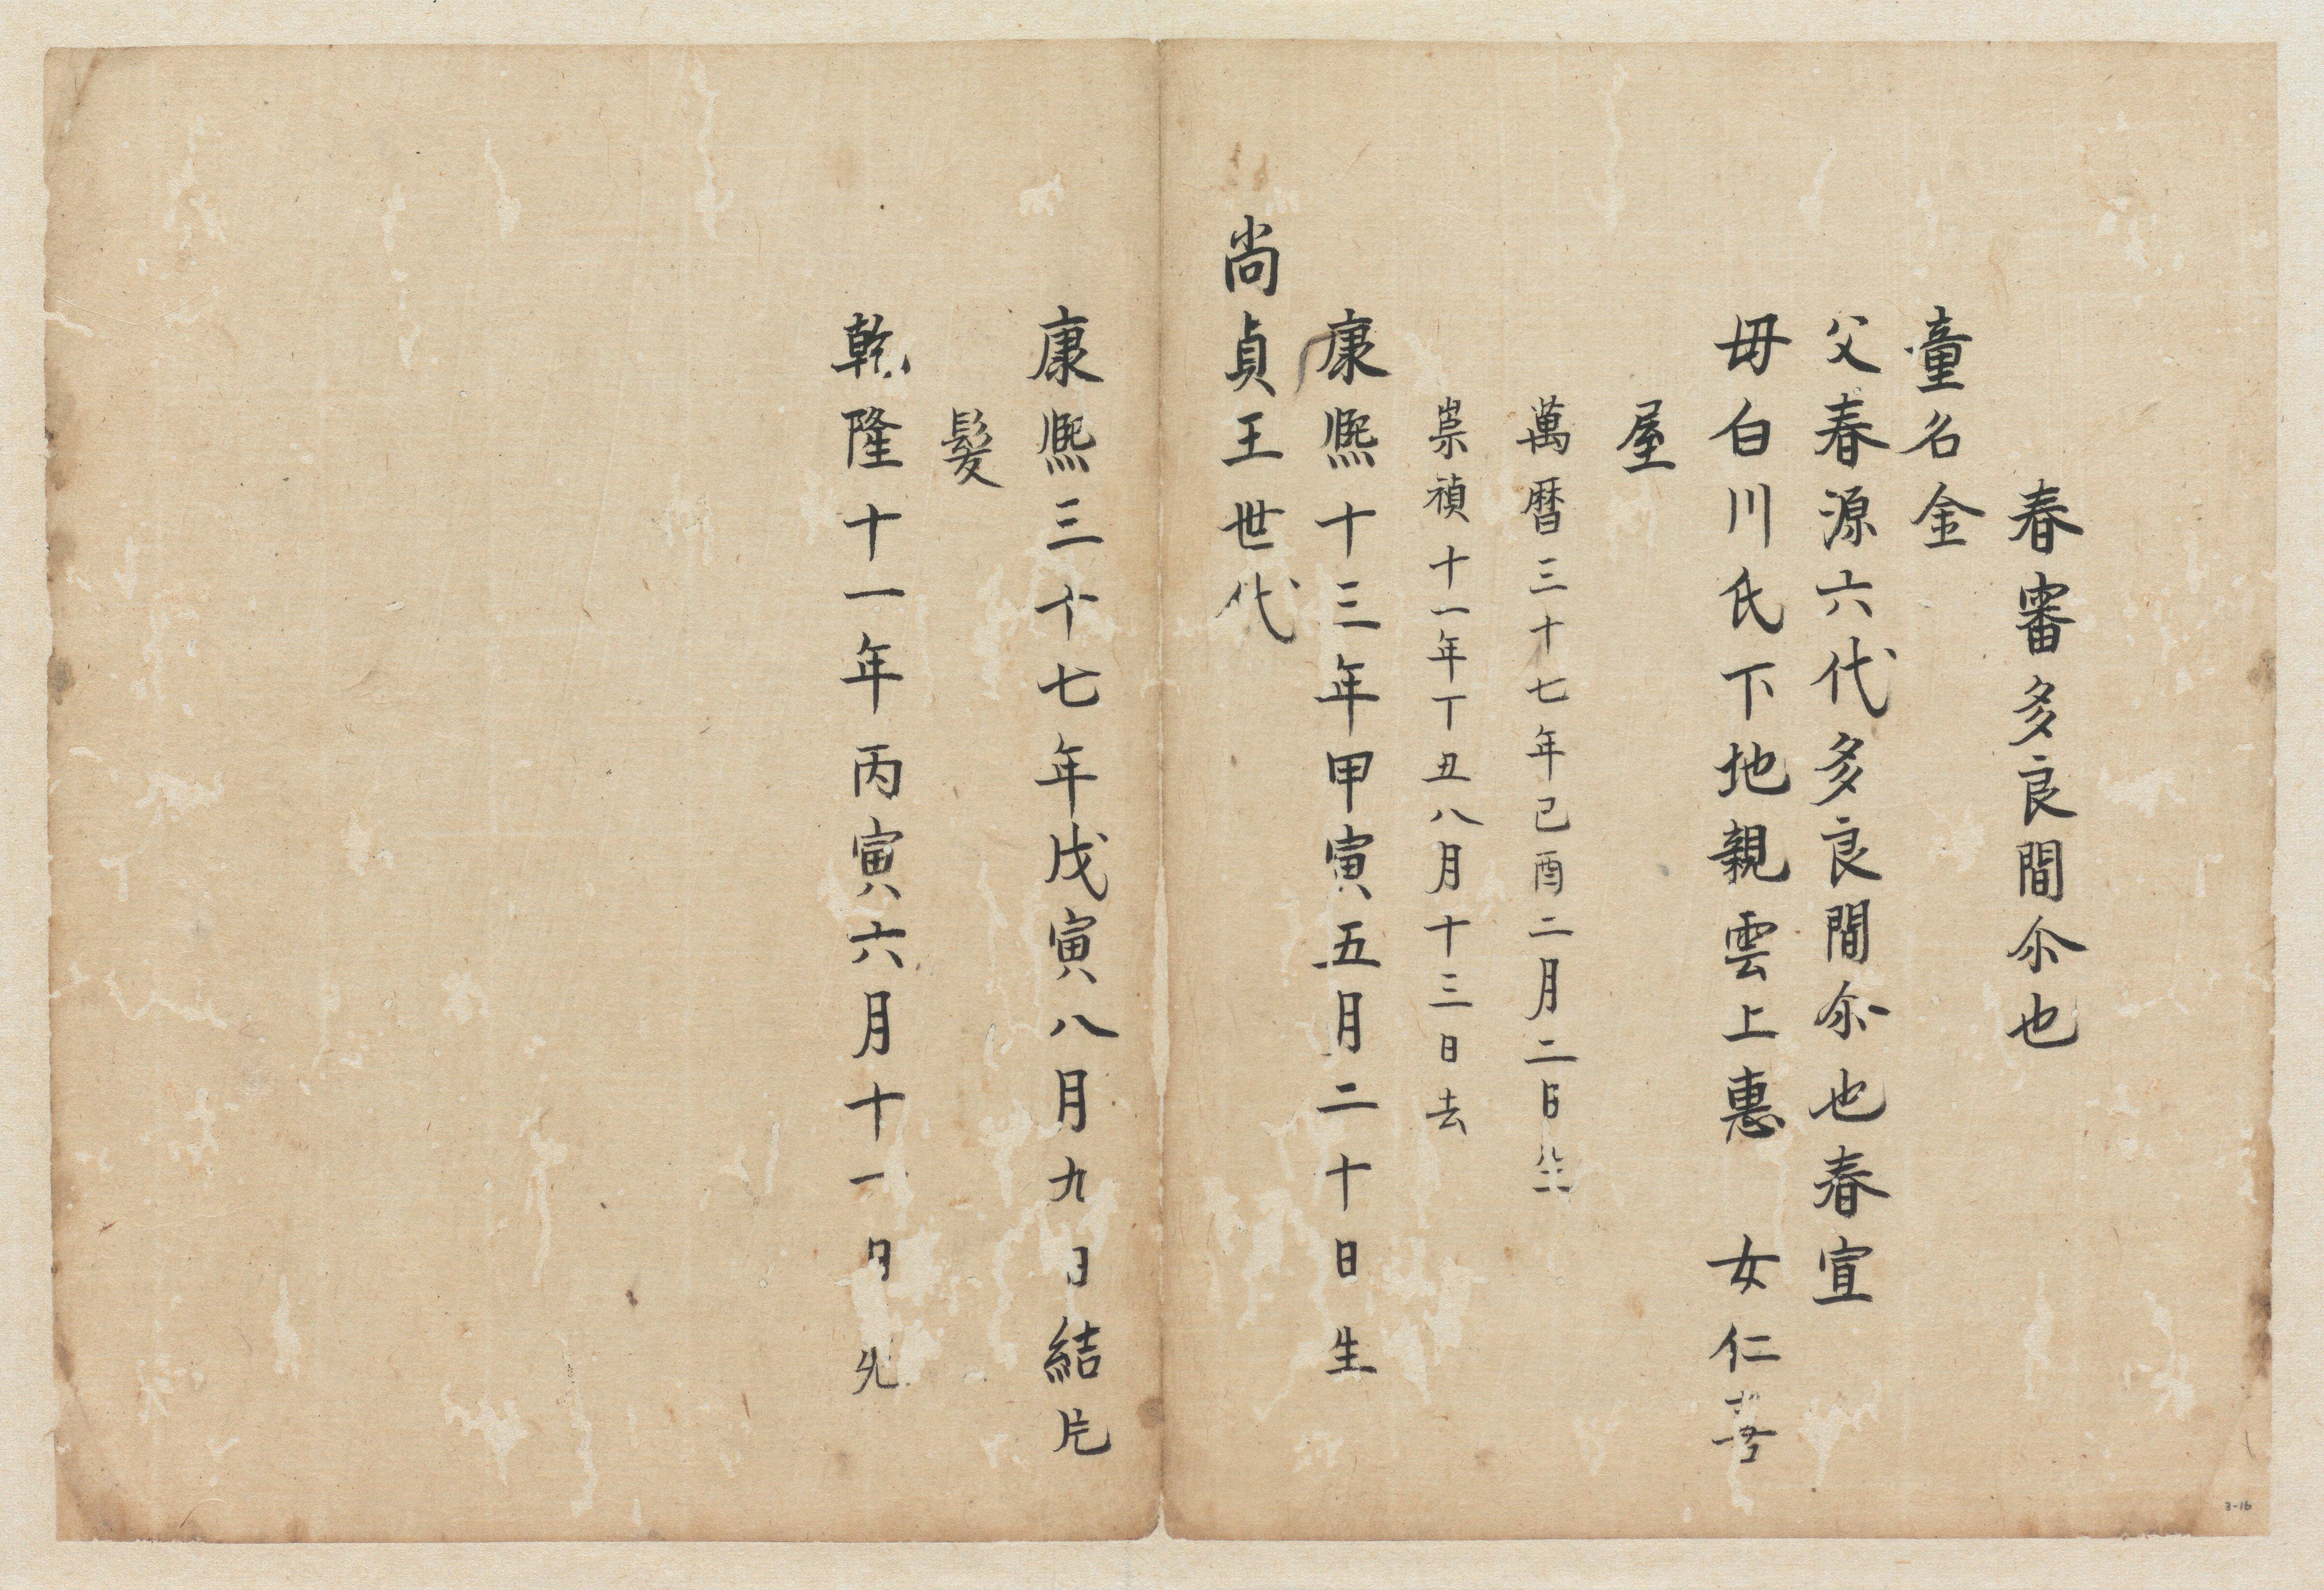 春審多良間尒也
童名金
父春源六代多良間尒也春宣
毋白川氏下地親雲上惠 女仁
屋
萬暦三十七年己酉二月二日生
崇禎十一年丁丑八月十三日去
康熈十三年甲寅五月二十日生
尚貞王世代
康熈三十七年戊寅八月九日結片
髮
乾隆十一年丙寅六月十一日
3-16